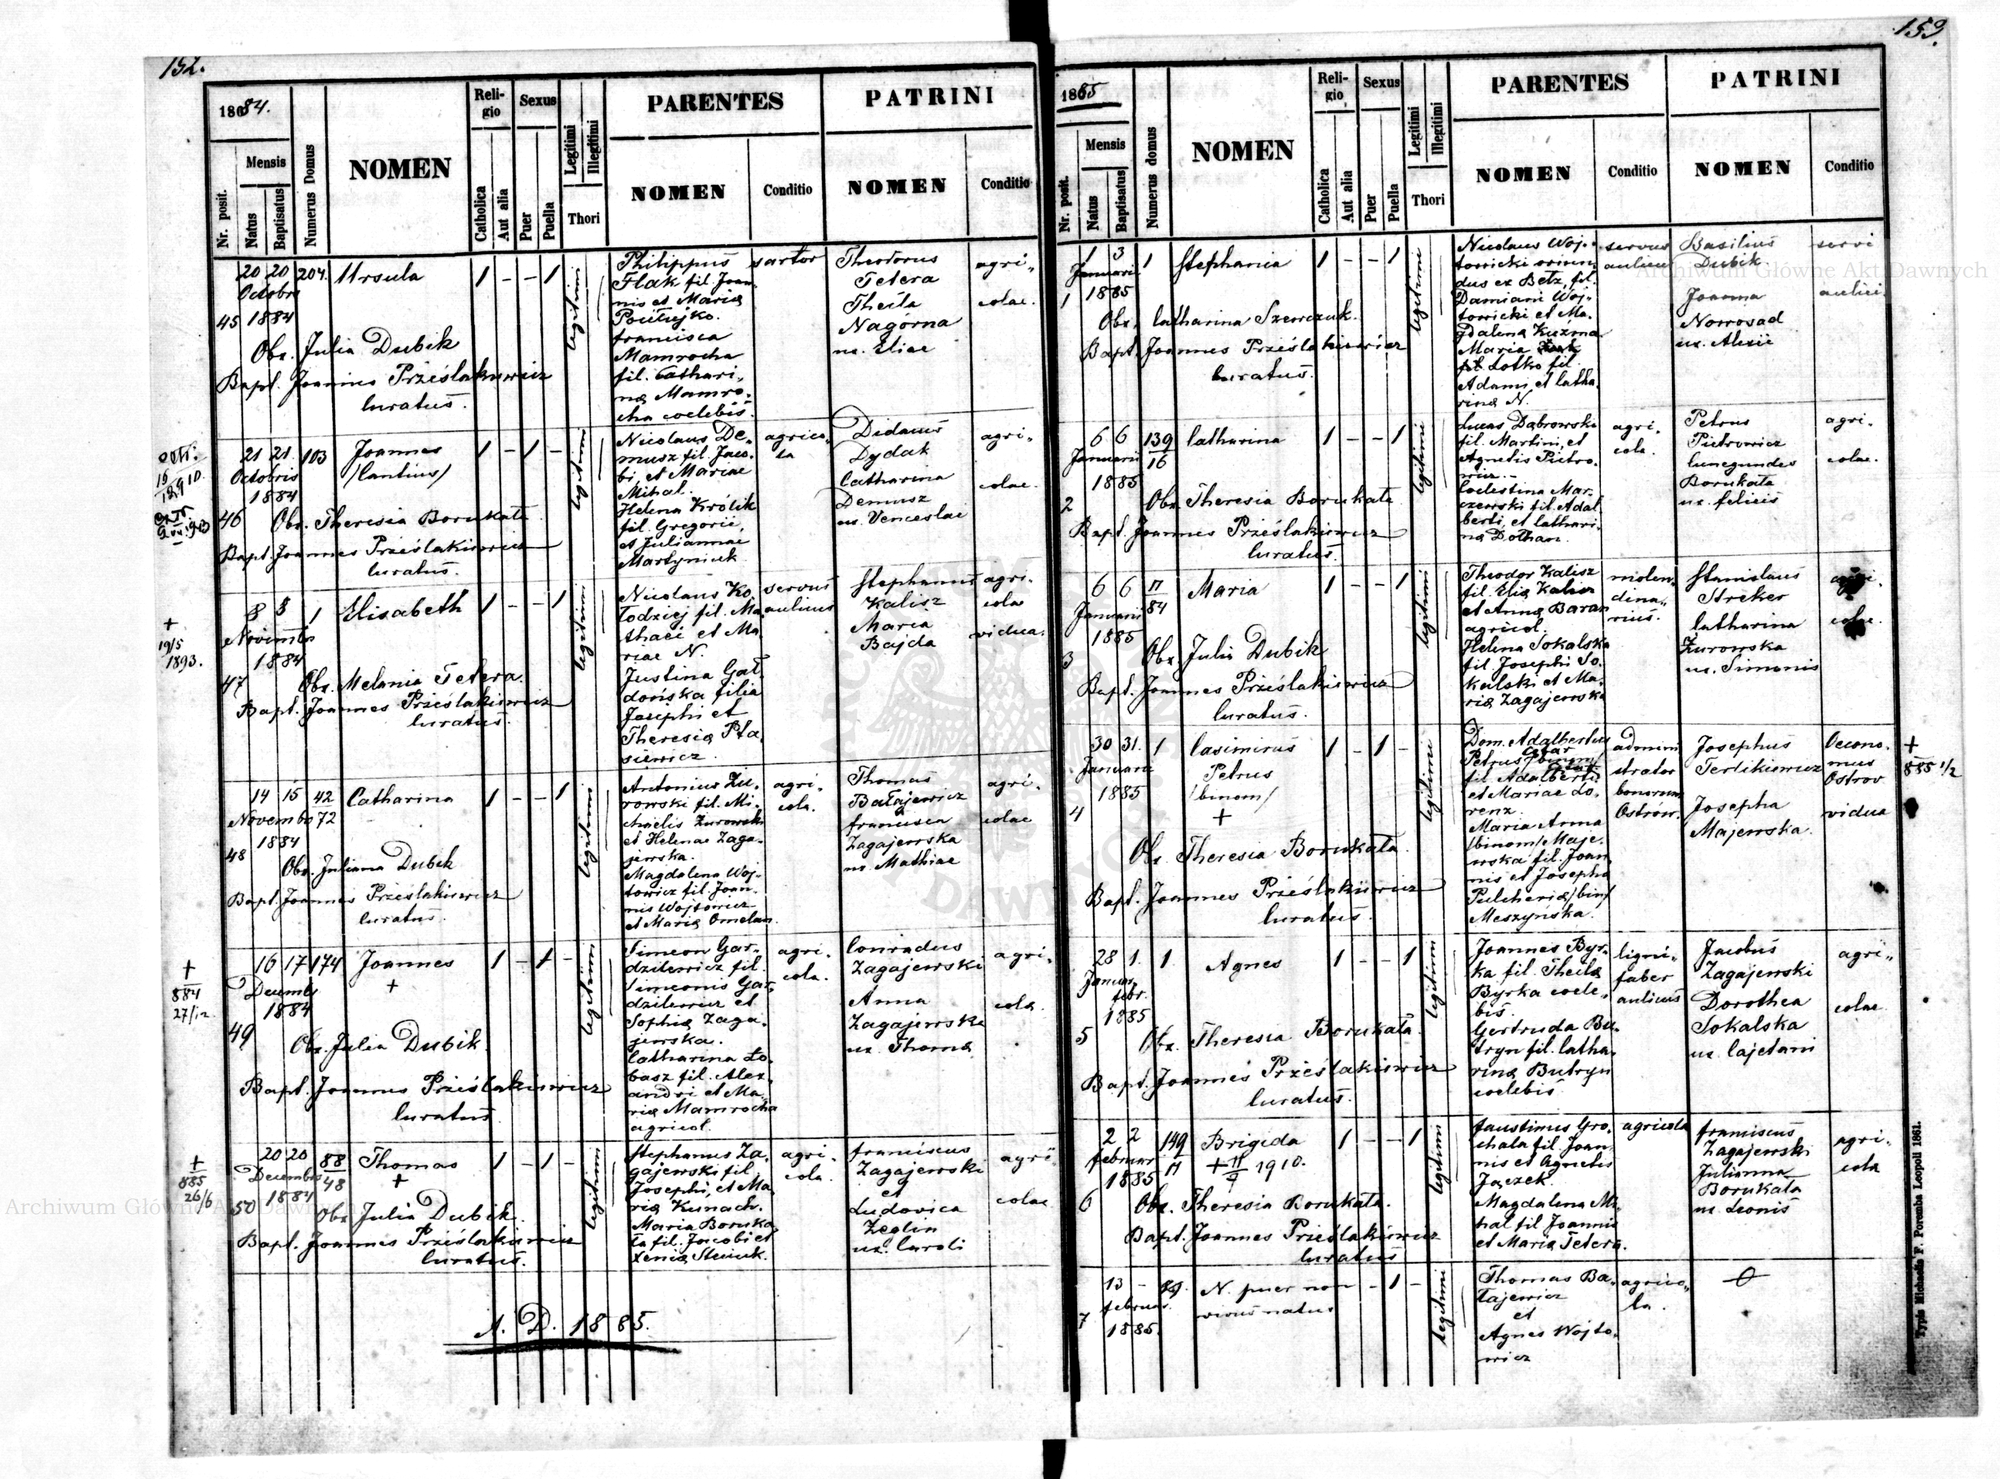 152.
1884.
Nr. posit.
Mensis
Natus
Baptisatus
Numerus Domus
NOMEN
Religio
Catholica
Aut alia
Sexus
Puer
Puella
Legitimi
Illegitimi
Thori
PARENTES
NOMEN
Conditio
PATRINI
NOMEN
Conditio
45
20 20 204. Ursula 1 - - 1
Octobris
1884
Obs. Julia Dubik
Bapt. Joannes Prześlakiewicz
Curatus.
legitimi
Philippus
Flak fil. Joan-
nis et Mariæ
francisca
Mamrocha
fil. Cathari-
næ Mamro-
cha coelebis.
sartor
Theodorus
Tetera
Thecla
Nagórna
ux. Eliae
agri-
colae.
15/12 910.
46
21 21 103 Joannes 1 - 1 -
Octobris /Cantius/
1884
Obs. Theresia Borukała
Bapt. Joannes Prześlakiewicz
Curatus.
legitimi
Nicolaus De-
musz fil. Jaco-
bi, et Mariae
Mihal.
Helena Królik
fil. Gregorii,
et Juliannae
Martyniuk
agrico-
la
Didacus
Dydak
Catharina
Demusz
ux. Venceslai
agri-
colae.
+
19/5
1893.
47
8 8 1 Elisabeth 1 - - 1
Novembr
1884
Obs. Melania Tetera
Bapt. Joannes Prześlakiewicz
Curatus.
legitimi
Nicolaus Ko-
łodziej fil. Ma-
thaei et Ma-
riae N.
Justina Gał-
dońska filia
Josephi et
Theresiæ Pta-
siewicz
servus
aulicus
Stephanus
Kalisz
Maria
Bajda
agri-
cola
vidua.
48
14 15 42 Catharina 1 - - 1
Novembr 72
1884
Obs. Juliana Dubik
Bapt. Joannes Prześlakiewicz
Curatus.
legitimi
Antonius Żu-
rowski fil. Mi-
chaelis Żurowski
et Helenae Zaga-
jewska.
Magdalena Woj-
towicz fil. Joan-
nis Wojtowicz
et Mariæ Omelan
agri-
cola.
Thomas
Bałajewicz
francisca
Zagajewska
ux. Mathiae
agri-
colae
+
884
27/12
49
16 17 174 Joannes 1 - 1 -
Decemb +
1884
Obs. Julia Dubik
Bapt. Joannes Prześlakiewicz
Curatus.
legitimi
Simeon Gar-
dzilewicz fil.
Simeonis Gar-
dzilewicz et
Sophiæ Zaga-
jewska.
Catharina Ło-
basz fil. Alex-
andri et Ma-
riæ Mamrocha
agricol.
agri-
cola.
Conradus
Zagajewski
Anna
Zagajewska
ux. Thomæ
agri-
colæ.
+
885
26/6
50
20 20 88 Thomas 1 - 1 -
Decembris 48 +
1884
Obs. Julia Dubik
Bapt. Joannes Prześlakiewicz
Curatus.
legitimi
Stephanus Za-
gajewski fil.
Josephi, et Ma-
riæ Kunach.
Maria Boruka-
ła fil. Jacobi et
Xeniæ
agri-
cola.
franciscus
Zagajewski
et
Ludovica
Zeglin
ux. Caroli
agri-
colae
A. D. 1885.
153.
1885
Nr. posit.
Mensis
Natus
Baptisatus
Numerus domus
NOMEN
Religio
Catholica
Aut alia
Sexus
Puer
Puella
Legitimi
Illegitimi
Thori
PARENTES
NOMEN
Conditio
PATRINI
NOMEN
Conditio
1
1 3 1 Stephania 1 - - 1
Januarii
1885
Obs. Catharina Szewczuk.
Bapt. Joannes Prześlakiewicz
Curatus.
legitimi
Nicolaus Woj-
towicki oriun-
dus ex Bełz, fil.
Damiani Woj-
towicki et Ma-
gdalenæ Kuzma
Maria
Lotko fil.
Adami, et Catha-
rinæ N.
servus
aulicus
Basilius
Dubik
Joanna
Nowosad
ux. Alexii
servi
aulici.
2
6 6 139 Catharina 1 - - 1
Januarii 16
1885
Obs. Theresia Borukała
Bapt. Joannes Prześlakiewicz
Curatus.
legitimi
Lucas Dąbrowski
fil. Martini, et
Agnetis Pietro-
wicz.
Coelestina Mar-
czewski fil. Adal-
berti, et Cathari-
næ Dołhan.
agri-
cola.
Petrus
Pietrowicz
Cunegundes
Borukała
ux. felicis
agri-
colae.
3
6 6 17 Maria 1 - - 1
Januarii 84
1885
Obs. Julia Dubik
Bapt. Joannes Prześlakiewicz
Curatus.
legitimi
Theodor Kalisz
fil. Eliæ Kalisz
et Annæ Baran
agricol.
Helena Sokalska
fil. Josephi So-
kalski et Ma-
riæ Zagajewska
molen-
dina-
rius.
Stanislaus
Streker
Catharina
Żurowska
ux. Simonis
agri-
colae.
4
30 31. 1 Casimirus 1 - 1 -
Januarii Petrus
1885 /binom/
+
Obs. Theresia Borukała.
Bapt. Joannes Prześlakiewicz
Curatus.
legitimi
Dom. Adalbertus
Petrus /binom/
fil. Adalberti
et Mariae Lo-
renz.
Maria Anna
/binom/ Maje-
wska fil. Joan-
nis et Josepha
Pulcheriæ /bin/
Meszyńska.
admini
strator
bonorum
Ostrów.
Josephus
Terlikiewicz
Josepha
Majewska.
Oecono-
mus
Ostrov
vidua
+
885 1/2
5
28 1. 1. Agnes 1 - - 1
Januar.
febr.
1885
Obs. Theresia Borukała.
Bapt. Joannes Prześlakiewicz
Curatus.
legitimi
Joannes Byr-
ka fil. Theclæ
Byrka coele-
bis.
Gertruda Bu-
tryn fil. Catha-
rinæ Butryn
coelebis
ligni-
faber
aulicus
Jacobus
Zagajewski
Dorothea
Sokalska
ux. Cajetani
agri-
colae
6
2 2 149 Brigida 1 - - 1
februar 17 + 11/9 1910.
1885
Obs. Theresia Borukała.
Bapt. Joannes Prześlakiewicz
Curatus
legitimi
faustinus Gro-
chala fil. Joan-
nis et Agnetis
Jączek.
Magdalena Mi-
hal fil Joannis
et Mariæ Tetera.
agricola
franciscus
Zagajewski
Julianna
Borukała
ux. Leonis
agri-
cola
7
13 - 89. N. puer non - 1 -
februar. vivus natus
1885.
legitimi
Thomas Ba-
łajewicz
et
Agnes Wojto-
wicz
agrico-
la.
Typis Michaelis F. Poremba Leopoli 1861.
Archiwum Główne Akt Dawnych
Archiwum Główne Akt Dawnych